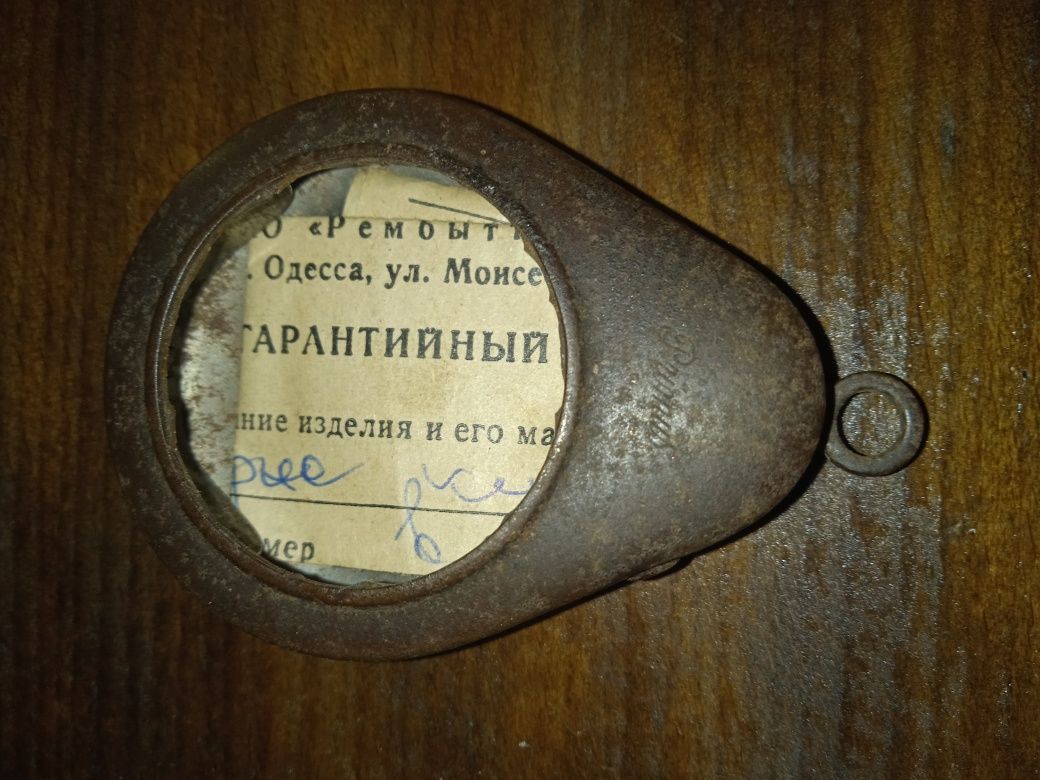 О «Рембыт
. Одесса, ул. Моисе
ГАРАНТИЙНЫЙ
ние изделия и его ма
мер